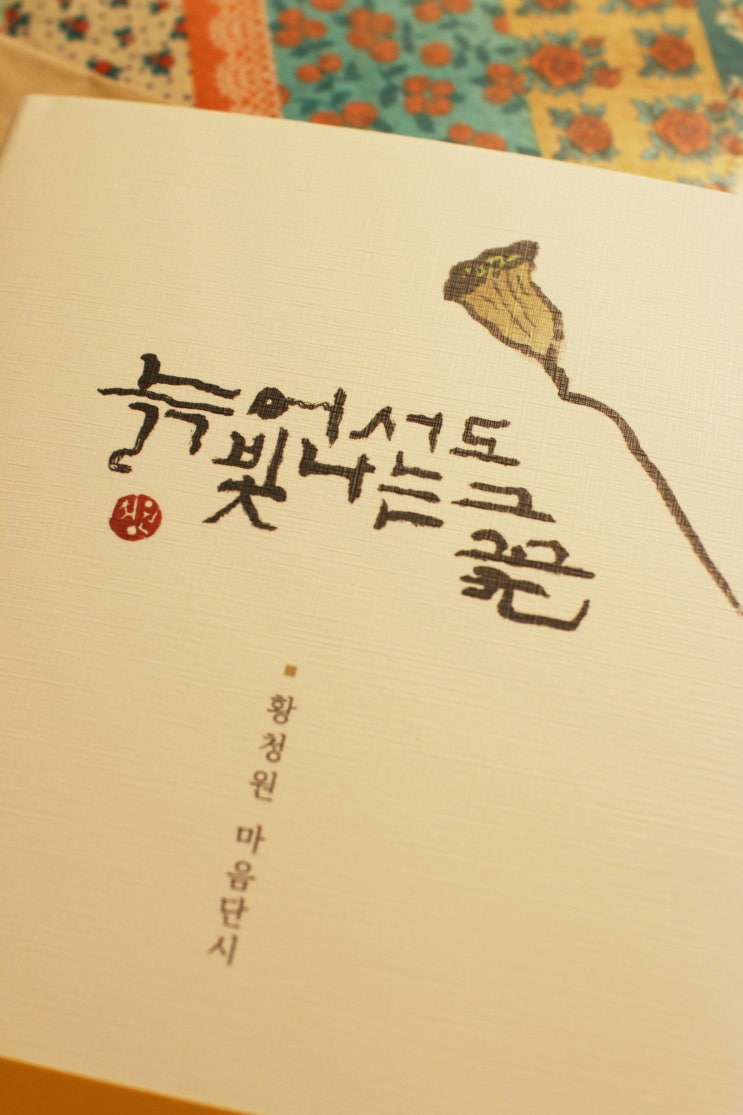 늙어서도
빛나는 그
꽃
황청원 마음단시